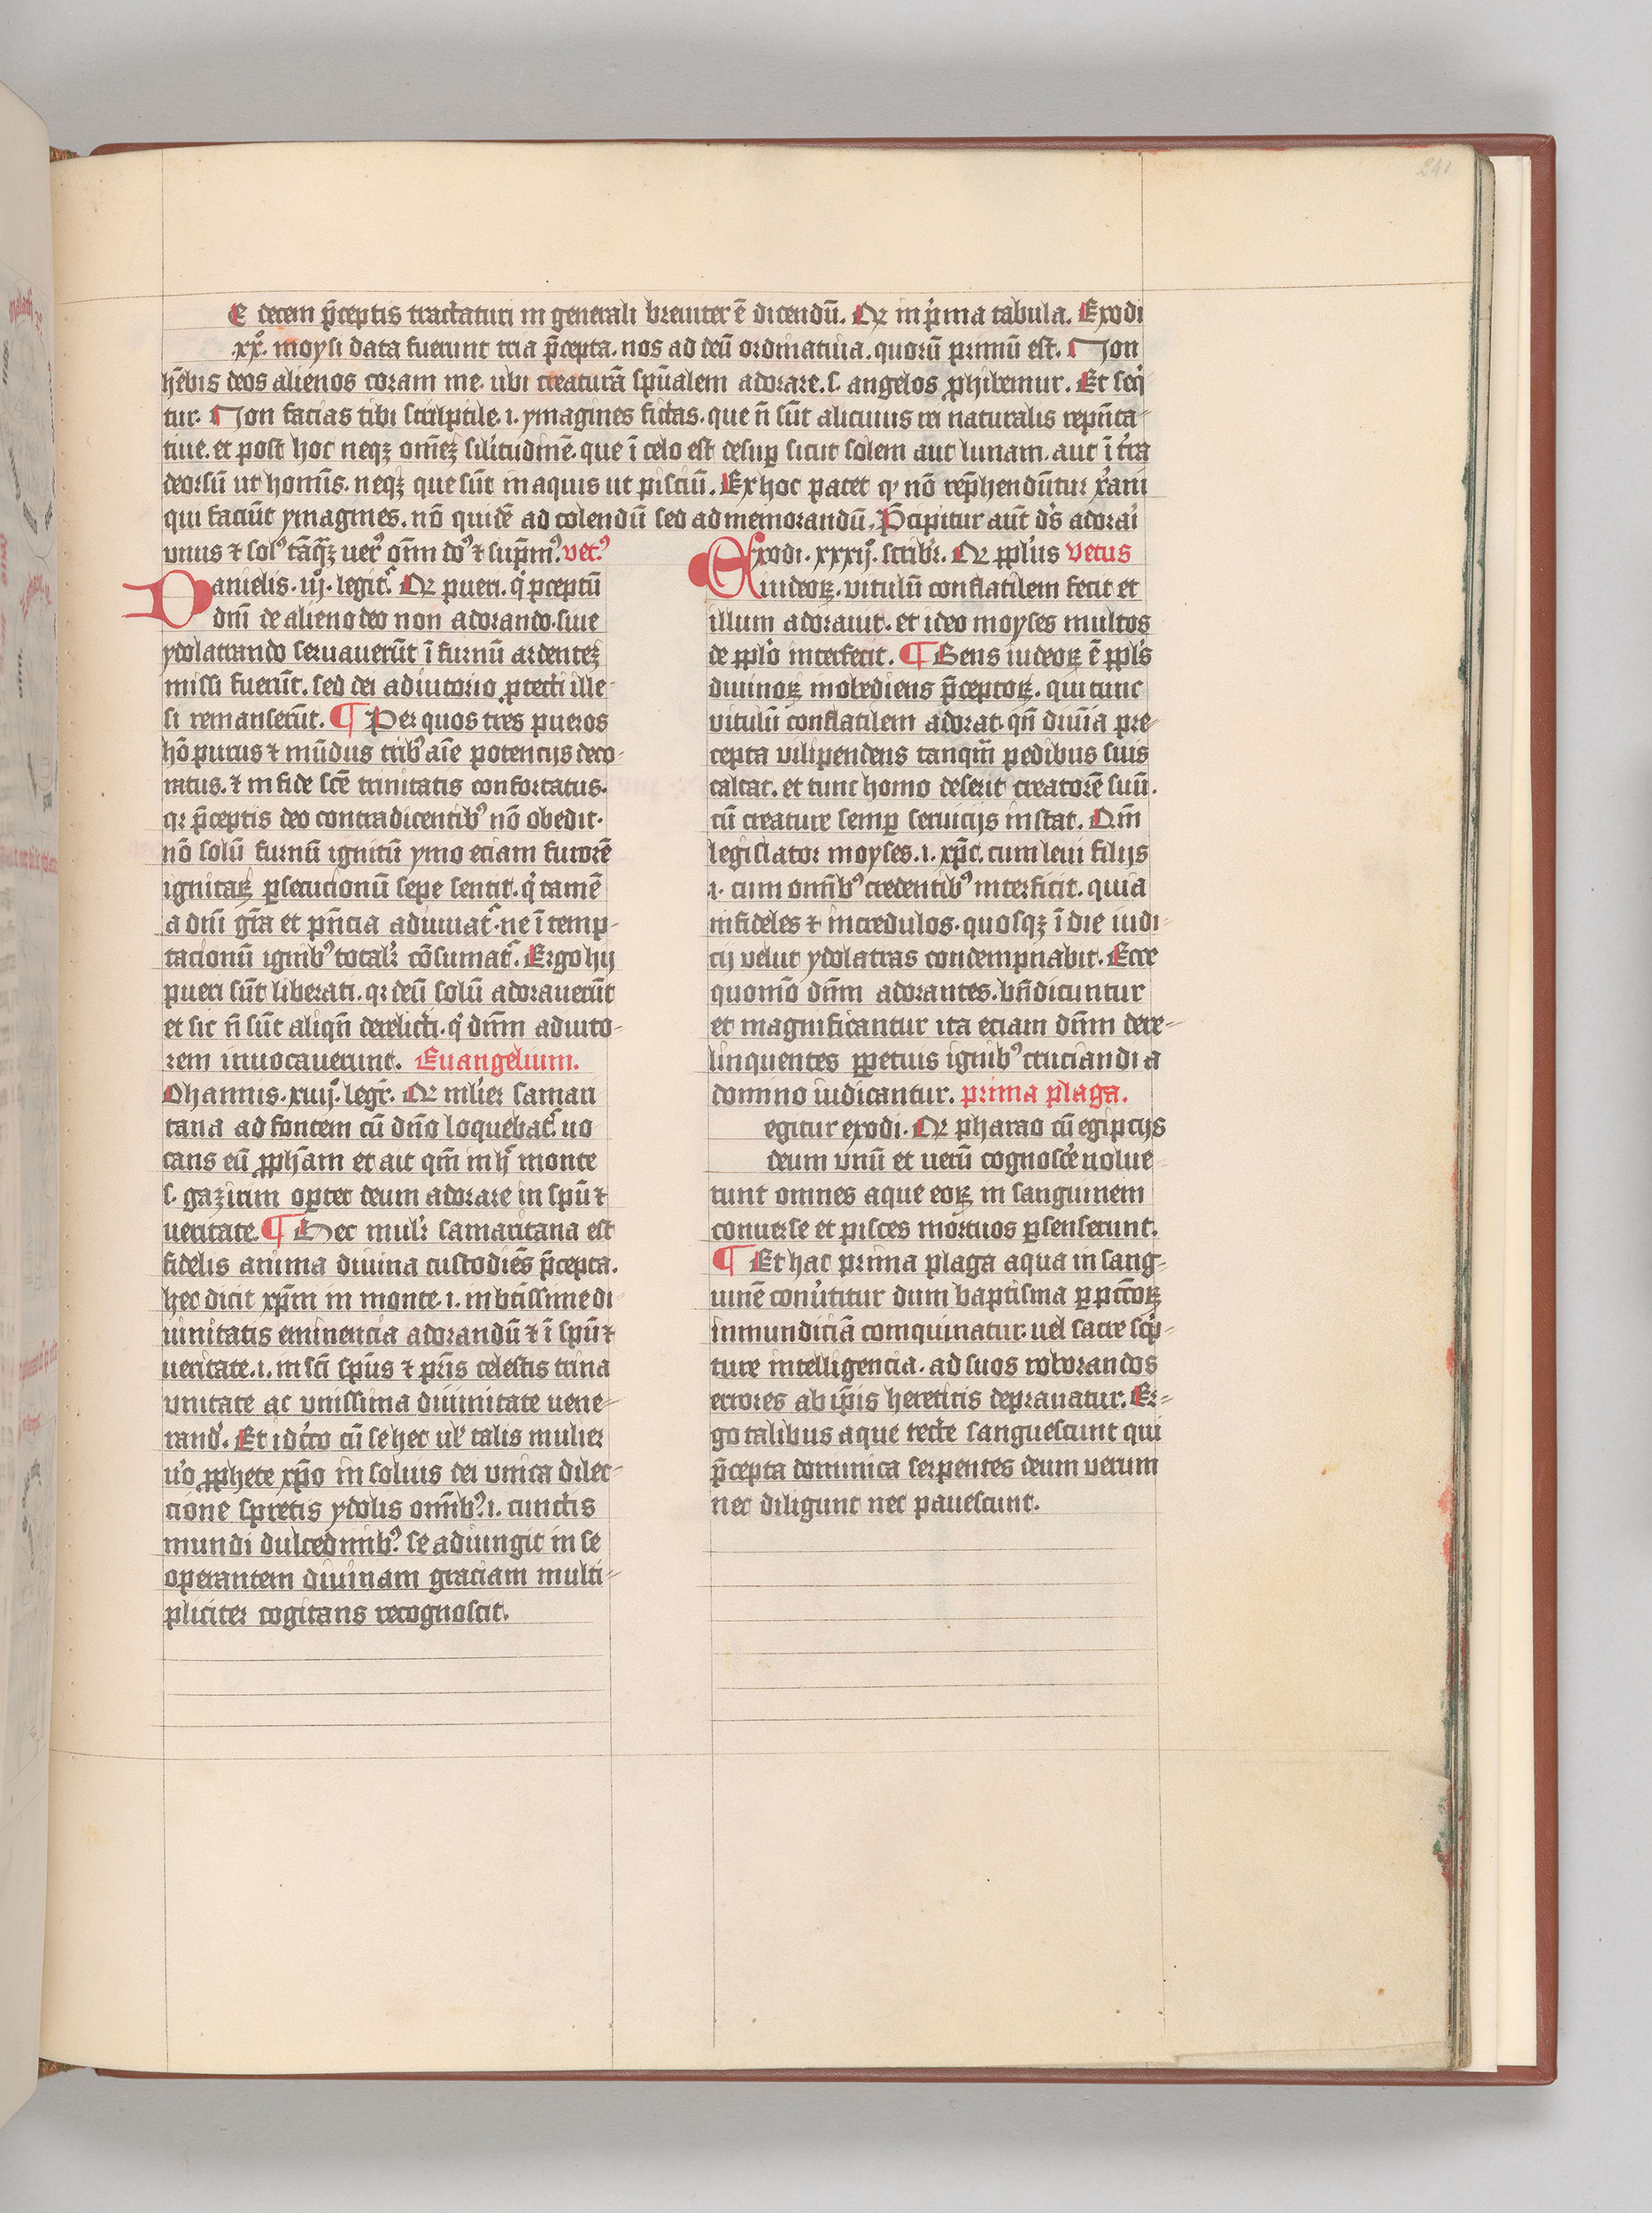 241
E decem p̄ceptis tractaturi in generali breuiter ē dicendū. Qr in p̍ma tabula. Exodi
.xx̊. moysi data fuerunt tria p̄cepta. nos ad deū ordinatiua. quorū primū est. Non
hēbis deos alienos coram me. ubi creaturā spūalem adorare. s. angelos ꝓhibemur. Et seq̍
tur. Non facias tibi sculptile. i. ymagines fictas. que n̄ sūt alicuius rei naturalis rep̄nta-
tiue. et post hoc neqꝫ om̄eꝫ sil̍itudinē. que ī celo est desuꝑ sicut solem aut lunam. aut ī t̍ra
deorsū ut homīs. neqꝫ que sūt in aquis ut pisciū. Ex hoc patet ꝙ nō rep̄hendūtur x̍ani
qui faciūt ymagines. nō quidē ad colendū sed ad memorandū. P̄cipitur aūt d̄s adorai
vnus ⁊ solꝰ tāq̄ꝫ uerꝰ om̄ dōꝰ ⁊ sup̄mꝰ. vetꝰ
Danielis. iij̊. legit᷑. Qr pueri. q̍ p̄ceptū
dn̄i de alieno deo non adorando. siue
ydolatrando seruauerūt ī furnū ardenteꝫ
missi fuerūt. sed dei adiutorio ꝓtecti ille-
si remanserūt. ¶ Per quos tres pueros
hō purus ⁊ mūdus tribꝰ aīe potencijs deco-
ratus. ⁊ in fide sc̄e trinitatis confortatus.
qr p̄ceptis deo contradicentibꝰ nō obedit.
nō solū furnū ignitū ymo eciam furorē
ignitaꝝ ꝑsecucionū sepe sentit. q̍ tamē
a dn̄i gr̄a et pn̄cia adiuuat᷑. ne ī temp-
tacionū ignibꝰ total̍r cōsumat᷑. Ergo hij
pueri sūt liberati. qr deū solū adorauerūt
et sic n̄ sūt aliqn̄ derelicti. q̍ dn̄m adiuto-
rem inuocauerunt. Euangelium.
Ohannis. xuiij̊. legr̄. Qr ml̍ier samari
tana ad fontem cū dn̄o loquebat᷑. uo
cans eū ꝓph̄am et ait qm̄ in h̍ monte
s. gazirim oꝑtet deum adorare in spū ⁊
ueritate. ¶ Hec mul̍r samaritana est
fidelis anima diuina custodiēs p̄cepta.
hec dicit xp̄m in monte. i. in btīssime di-
uinitatis eminencia adorandū ⁊ ī spū ⁊
ueritate. i. in sc̄i spūs ⁊ pr̄is celestis trina
vnitate ac vnissima diuinitate uene-
rand̍. Et id̍cro cū se hec ul̍ talis mulier
u̍o ꝓphete xp̄o in solius dei vnica dilec-
cione spretis ydolis om̄ibꝰ. i. cunctis
mundi dulcedinibꝰ. se adiungit in se
operantem diuinam graciam multi-
pliciter cogitans recognoscit.
Exodi. xxxij̊. scribr̍. Qr ppl̍us vetus
iudeoꝝ. vitulū conflatilem fecit et
illum adorauit. et ideo moyses multos
de ppl̍o interfecit. ¶ Gens iudeoꝝ ē ppl̍s
diuinoꝝ inobediens p̄ceptoꝝ. qui tunc
vitulū conflatilem adorat. qn̄ diuīa pre-
cepta vilipendens tanqm̄ pedibus suis
calcat. et tunc homo deserit creatorē suū.
cū creature semꝑ seruicijs instat. Qm̄
legislator moyses. i. xp̄c. cum leui filijs
.i. cum om̄ibꝰ credentibꝰ interficit. quia
infideles ⁊ incredulos. quosqꝫ ī die iudi-
cij velut ydolatras condempnabit. Ecce
quomō dn̄m adorantes. bn̄dicuntur
et magnificantur ita eciam dn̄m dere-
linquentes ꝑpetuis ignibꝰ cruciandi a
domino iudicantur. prima plaga.
egitur exodi. Qr pharao cū egipcijs
deum vnū et uerū cognosc̍e nolue-
runt omnes aque eoꝝ in sanguinem
conuerse et pisces mortuos ꝑsenserunt.
¶ Et hac prima plaga aqua in sang-
uinē conu̍titur dum baptisma ꝑ pcc̄oꝝ
inmundiciā coinquinatur. uel sacre sc̍p-
ture intelligencia. ad suos roborandos
errores ab ip̄is hereticis deprauatur. Er-
go talibus aque recte sanguescunt qui
p̄cepta dominica serpentes deum verum
nec diligunt nec pauescunt.